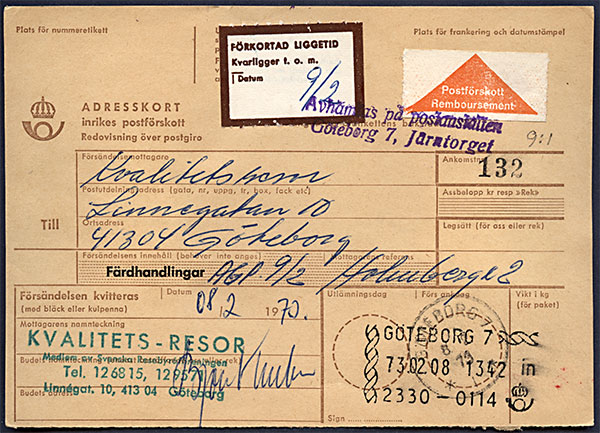 Plats för nummeretikett
Plats för frankering och datumstämpel
FÖRKORTAD LIGGETID
Kvarligger t. o. m.
Datum
9/2
Postförskott
Remboursement
Avhämtas på postanstalten
Göteborg 7, Järntorget
9:1
ADRESSKORT
inrikes postförskott
Redovisning över postgiro
Försändelsemottagare
Ankomstnr
132
Kvalitetsresor
Postutdelningsadress (gata, nr, uppg, tr, box, fack etc)
Assbelopp kr resp »Rek»
Linnégatan 10
Till
Ortsadress
Legsätt (för ass eller rek)
41304 Göteborg
Försändelsens innehåll (behöver inte anges)
Mottagarens referens
Färdhandlingar
AGP 9/2 Holmberg
Försändelsen kvitteras
(med bläck eller kulpenna)
Datum
08/2 1973.
Utlämningsdag
Förs ankom
Vikt i kg
(för paket)
Mottagarens namnteckning
KVALITETS-RESOR
Medlem av Svenska Resebyråföreningen
Tel. 126815, 12957
Linnégat. 10, 413 04 Göteborg
Budets adress
GÖTEBORG 7
8 2
73
GÖTEBORG 7
73.02.08 1342
2330-0114
Sign